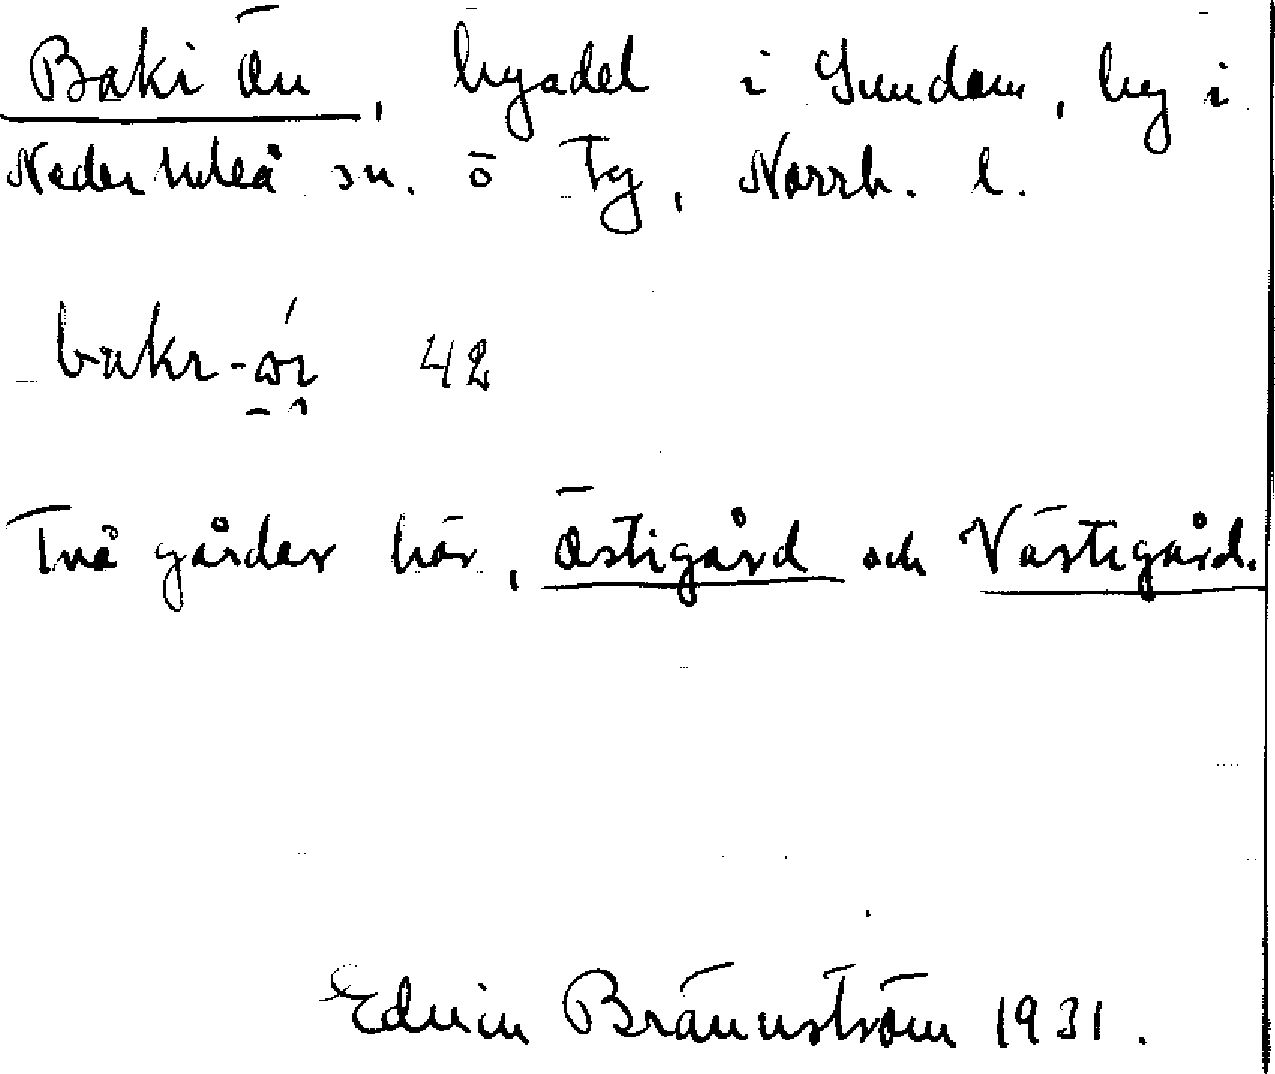 Baki ön, byadel i Sundom, by i
Nederluleå sn. ö Tg, Norrb. l.
bakɩ-ǿɩ 42
Två gårdar här, Östigård och Västigård.
Edvin Brännström 1931.